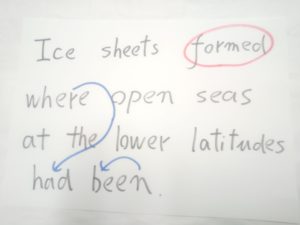 Ice sheets formed
where open seas
at the lower latitudes
had been.